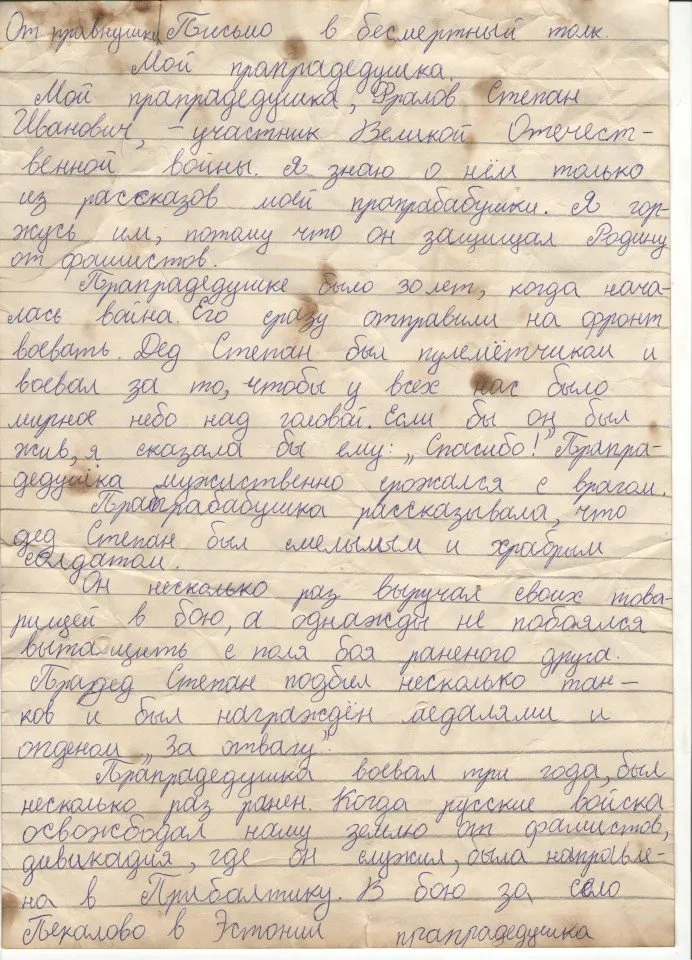 От правнушки Письмо в бесмертный полк.
Мой прапрадедушка.
Мой прапрадедушка, Фралов Степан
Иванович, – участник Великой Отечест-
венной войны. Я знаю о нём только
из рассказов моей прапрабабушки. Я гор-
жусь им, потому что он защищал Родину
от фашистов.
Прапрадедушке было 30 лет, когда нача-
лась война. Его сразу отправили на фронт
воевать. Дед Степан был пулемётчиком и
воевал за то, чтобы у всех нас было
мирное небо над головой. Если бы он был
жив, я сказала бы ему: „Спасибо!" Прапра-
дедушка мужиственно срожался с врагом.
Прапрабабушка рассказывала, что
дед Степан был смелымым и храбрым
солдатом.
Он несколько раз выручал своих това-
рищей в бою, а однажды не побоялся
вытащить с поля боя раненого друга.
Прадед Степан подбил несколько тан-
ков и был награждён медалями и
орденом „За отвагу".
Прапрадедушка воевал три года, был
несколько раз ранен. Когда русские войска
освожбодал нашу землю от фашистов,
дивикадия, где он служил, была направле-
на в Прибалтику. В бою за село
Пекалово в Эстонии прапрадедушка